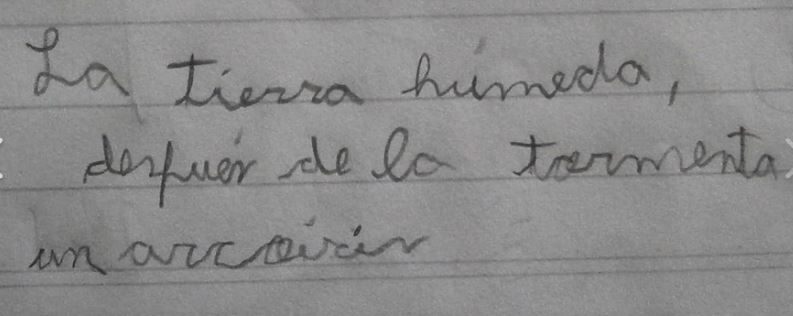 La tierra húmeda,
después de la tormenta
un arcoíris